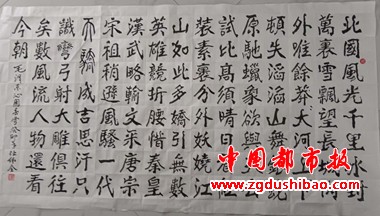 北國風光千里冰封
萬里雪飄望長城內
外唯餘莽大河上下
頓失滔滔山舞銀蛇
原馳蠟象欲與天公
試比高須晴日看紅
裝素裹分外妖嬈江
山如此多嬌引無數
英雄競折腰惜秦皇
漢武略輸文采唐宗
宋祖稍遜風騷一代
天驕成吉思汗只
識彎弓射大雕俱往
矣數風流人物還看
今朝
中国都市报
www.zgdushibao.com